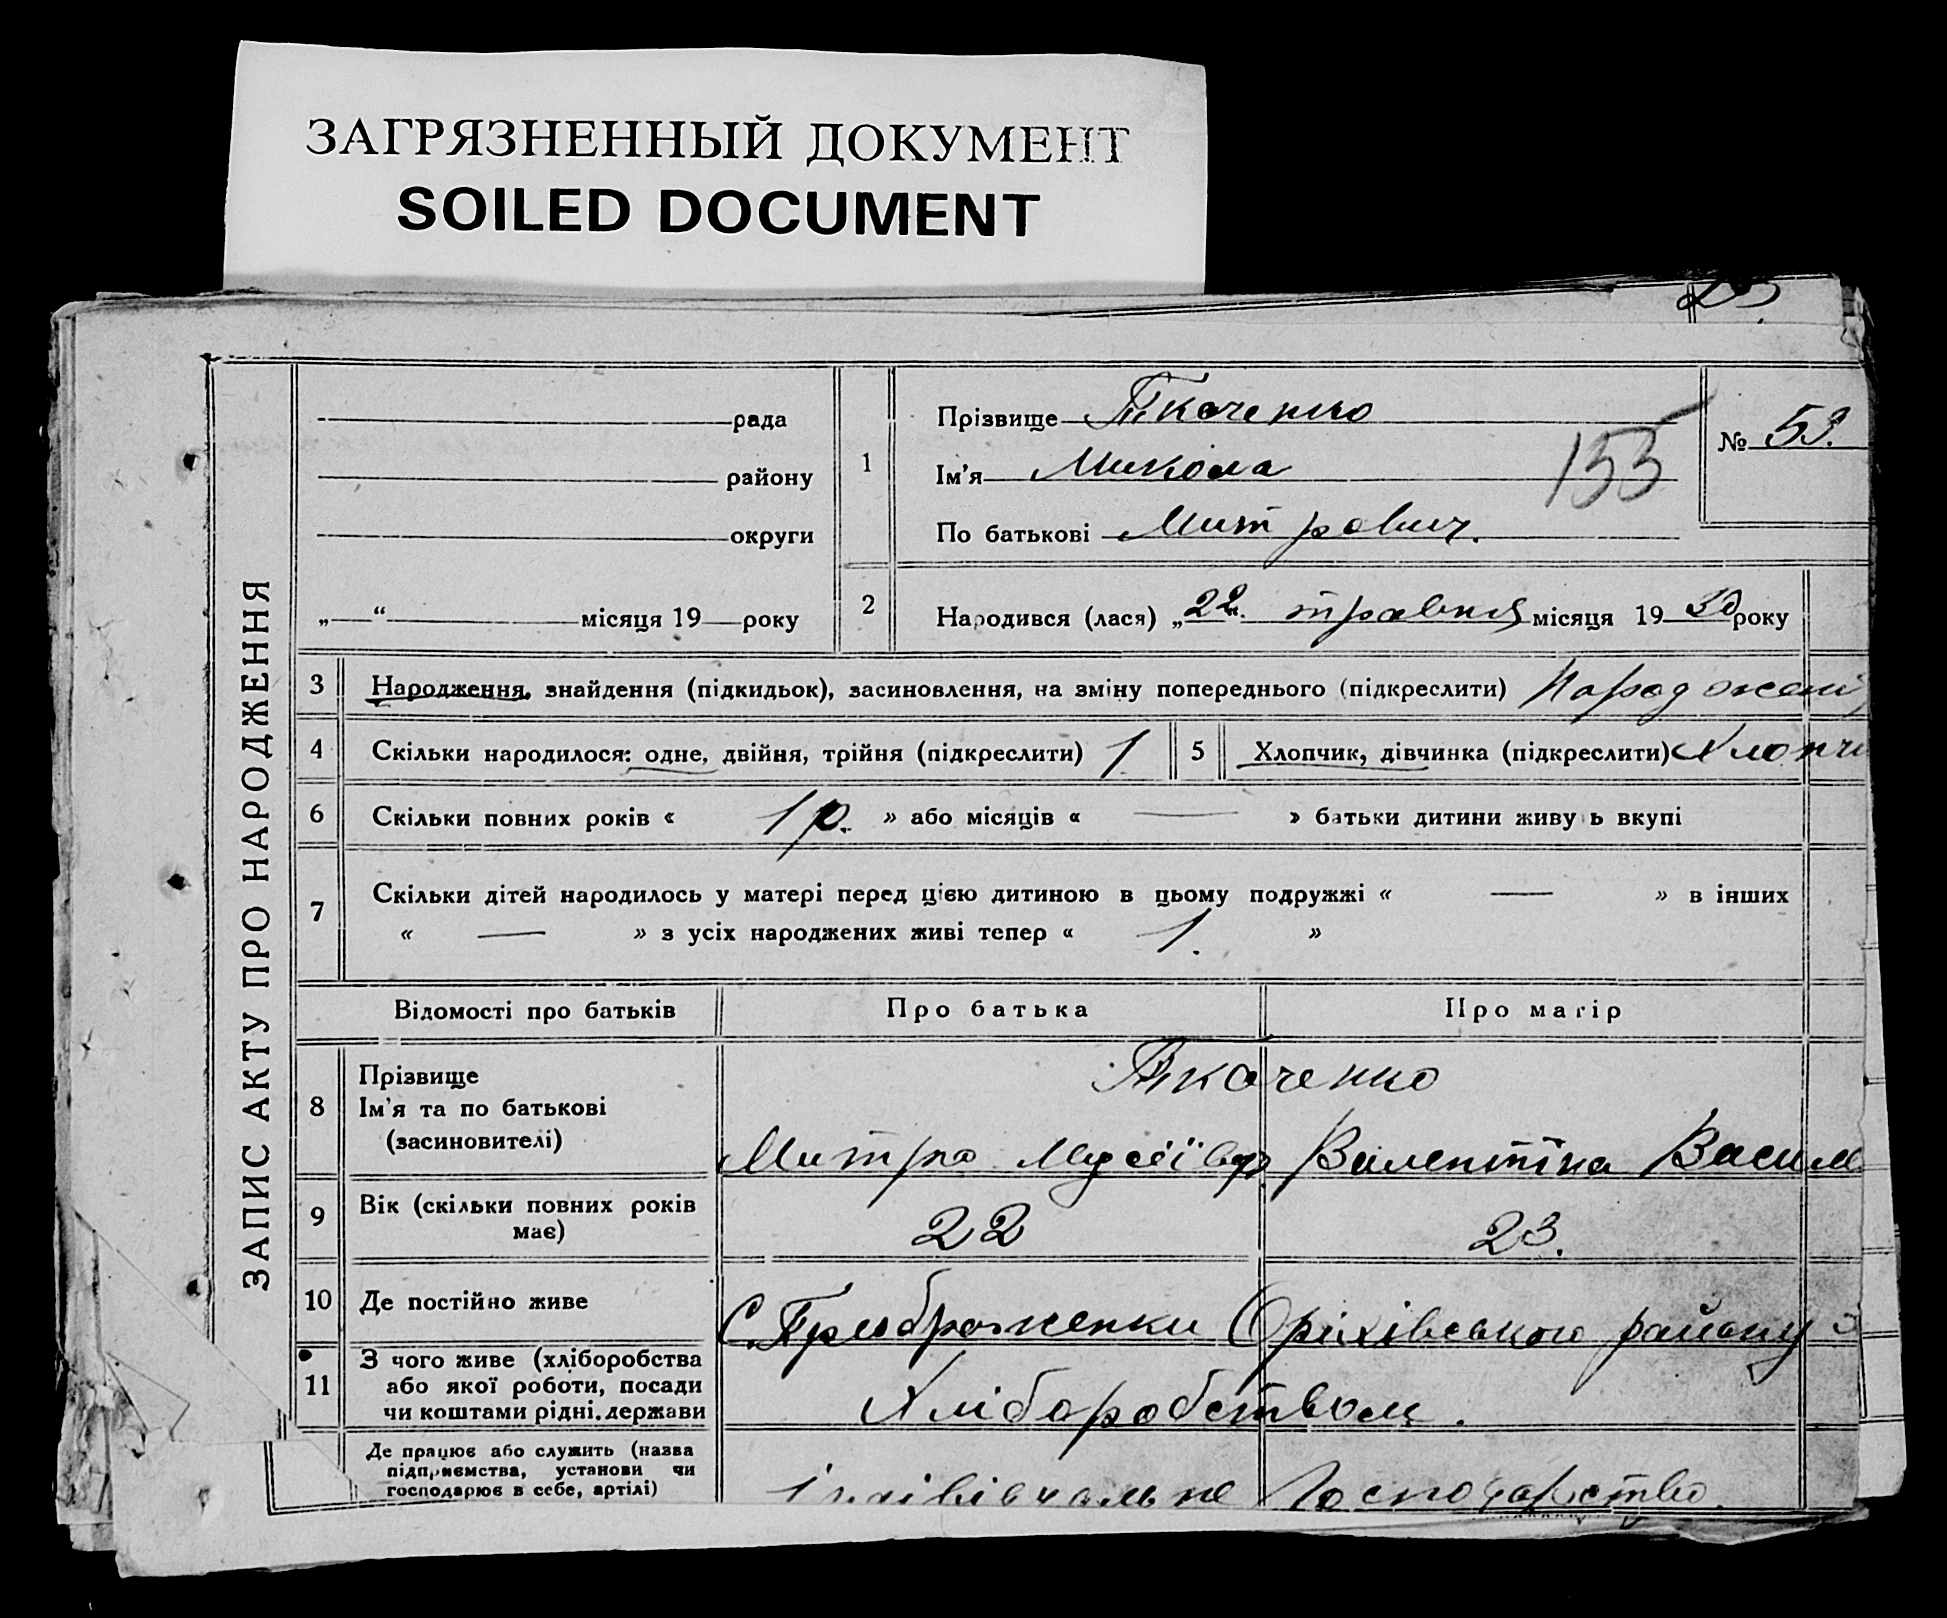 ЗАГРЯЗНЕННЫЙ ДОКУМЕНТ
SOILED DOCUMENT
ЗАПИС АКТУ ПРО НАРОДЖЕННЯ
рада
району
округи
„ “ місяця 19 року
1
Прізвище Ткаченко
Ім'я Микола
По батькові Митрович.
155
№ 53.
2 Народився (лася) „22. травня місяця 19 30 року
3 Народження, знайдення (підкидьок), засиновлення, на зміну попереднього (підкреслити) Народжені
4 Скільки народилося: одне, двійня, трійня (підкреслити) 1.
5 Хлопчик, дівчинка (підкреслити) Хлопчи
6 Скільки повних років « 1 р. » або місяців « — » батьки дитини живу ь вкупі
7 Скільки дітей народилось у матері перед цією дитиною в цьому подружжі « — » в інших
« — » з усіх народжених живі тепер « 1. »
Відомості про батьків Про батька Про матір
8 Прізвище
Ім'я та по батькові
(засиновителі)
Ткаченко
Митро Мусіїв Валентіна Васил
9 Вік (скільки повних років
має)
22 23.
10 Де постійно живе С. Преображенки Оріхівського району З
11 З чого живе (хліборобства
або якої роботи, посади
чи коштами рідні. держави
Хліборобством.
Де працює або служить (назва
підприємства, установи чи
господарює в себе, артілі)
індівідуальне господарство.